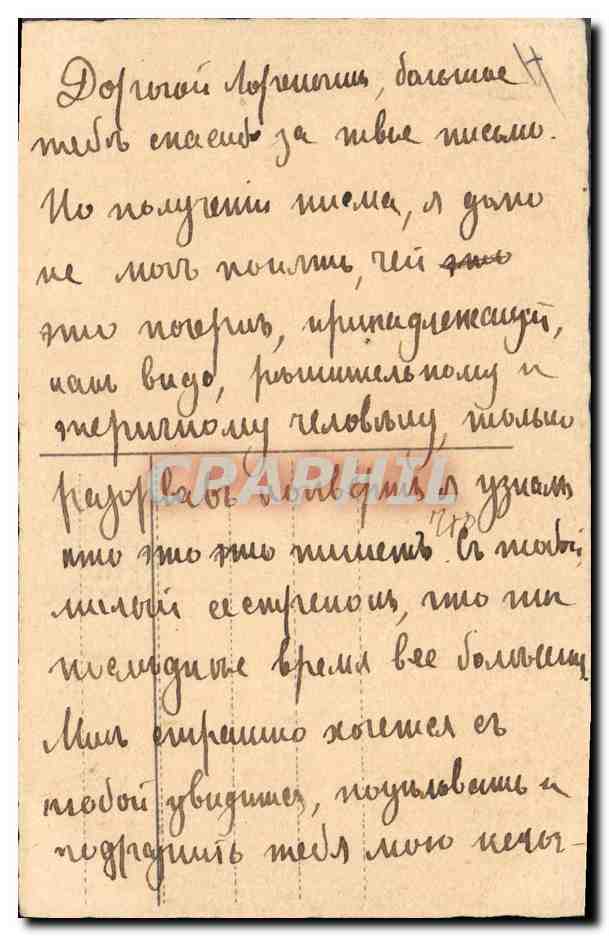 Дорогой Лоренчик, большое
тебѣ спасибо за твое письмо.
По полученіи писма, я долго
не могъ понять, чей
это почеркъ, принадлежащій,
какъ видо, рѣшительному и
энеричному человѣку, только
разорвавъ конвертъ я узналъ
кто это это пишетъ. Съ тобой,
милый сестренок, что ты
послѣднее время все болѣешь.
Мнѣ страшно хочется съ
тобой увидиться, поцѣловать и
подразнить тебя мою нечы-
CPAPHIL